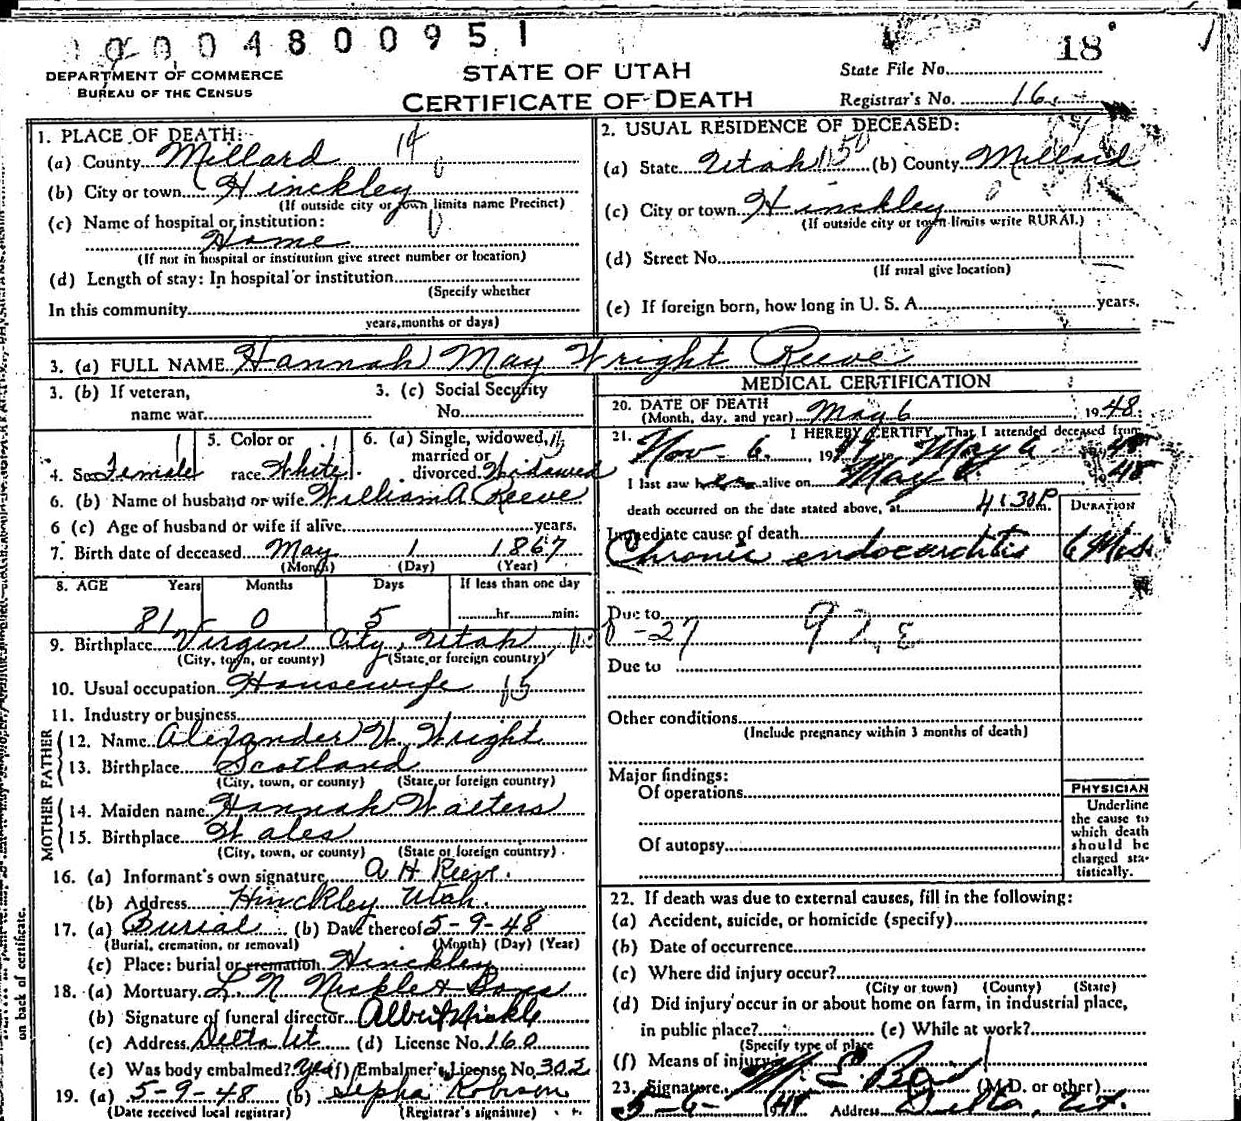 0004800951
18
DEPARTMENT OF COMMERCE
BUREAU OF THE CENSUS
STATE OF UTAH
CERTIFICATE OF DEATH
State File No.
Registrar's No. 16
1. PLACE OF DEATH:
(a) County Millard 14
(b) City or town Hinckley
(If outside city or town limits name Precinct)
(c) Name of hospital or institution:
Home
(If not in hospital or institution give street number or location)
(d) Length of stay: In hospital or institution
(Specify whether
In this community
years, months or days)
2. USUAL RESIDENCE OF DECEASED:
(a) State Utah (b) County Millard
(c) City or town Hinckley
(If outside city or town limits write RURAL)
(d) Street No.
(If rural give location)
(e) If foreign born, how long in U. S. A. years.
3. (a) FULL NAME Hannah May Wright Reeve
3. (b) If veteran,
name war
3. (c) Social Security
No.
4. Sex Female
5. Color or
race White
6. (a) Single, widowed,
married or
divorced Widowed
6. (b) Name of husband or wife William A Reeve
6 (c) Age of husband or wife if alive years.
7. Birth date of deceased May 1 1867
(Month) (Day) (Year)
8. AGE Years Months Days If less than one day
81 0 5 hr. min.
9. Birthplace Virgin City, Utah
(City, town, or county) (State or foreign country)
10. Usual occupation Housewife
11. Industry or business
FATHER
12. Name Alexander W. Wright
13. Birthplace Scotland
(City, town, or county) (State or foreign country)
MOTHER
14. Maiden name Hannah Walters
15. Birthplace Wales
(City, town, or county) (State or foreign country)
16. (a) Informant's own signature A H Reeve.
(b) Address Hinckley Utah.
17. (a) Burial (b) Date thereof 5-9-48
(Burial, cremation, or removal) (Month) (Day) (Year)
(c) Place: burial or cremation Hinckley
18. (a) Mortuary L N Nickle & Sons
(b) Signature of funeral director Albert Nickle
(c) Address Delta Ut (d) License No. 160
(e) Was body embalmed? Yes (f) Embalmer's License No. 302
19. (a) 5-9-48 (b) Sepha Robison
(Date received local registrar) (Registrar's signature)
on back of certificate.
MEDICAL CERTIFICATION
20. DATE OF DEATH
(Month, day, and year) May 6 1948
21. I HEREBY CERTIFY, That I attended deceased from
Nov - 6, 1947 to May 6 48
I last saw her alive on May 6 1948
death occurred on the date stated above, at 4:30 P.
DURATION
Immediate cause of death
Chronic endocarditis 6 Mos
Due to
-27
Due to
Other conditions
(Include pregnancy within 3 months of death)
Major findings:
Of operations
Of autopsy
PHYSICIAN
Underline
the cause to
which death
should be
charged sta-
tistically.
22. If death was due to external causes, fill in the following:
(a) Accident, suicide, or homicide (specify)
(b) Date of occurrence
(c) Where did injury occur?
(City or town) (County) (State)
(d) Did injury occur in or about home on farm, in industrial place,
in public place? (e) While at work?
(Specify type of place
(f) Means of injury
23. Signature (M.D. or other)
5-6- 1948 Address Delta, Ut.